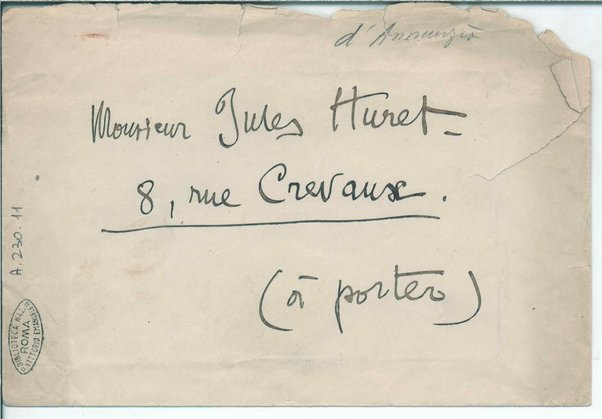 d'Annunzio
Monsieur Jules Huret
8, rue Crevaux.
(à porter)
A.230.11
BIBLIOTECA NAZ.
ROMA
VITTORIO EMANUELE